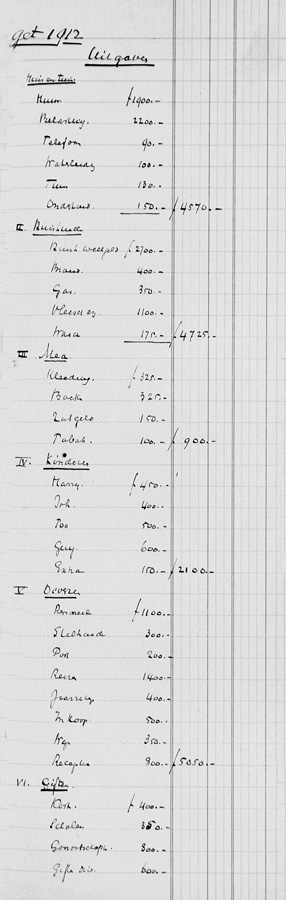 1912
Uitgaven
Huis en tuin
Huur f1900.-
Belasting 2200.-
Telefoon 90.-
Waterleiding 100.-
Tuin 130.-
Onderhoud 150.- f4570.-
II. Huishoud
f2700.-
Brand 400.-
Gas 350.-
1100.-
Wasch 175.- f4725.-
III. Mea
Kleeding f325.-
Boek 325.-
Zakgeld 150.-
Tabak 100.- f900.-
IV. Kinderen
Harry f450.-
Joh. 400.-
Too 500.-
Guy 600.-
Extra 150.- f2100.-
V. Diversen
Personeel f1100.-
300.-
Port 200.-
Reizen 1400.-
400.-
Inkoop 500.-
Wijn 350.-
Recepties 800.- f5050.-
VI. Giften
Kerk f400.-
Scholen 350.-
Genootschapp. 300.-
Giften div. 600.-